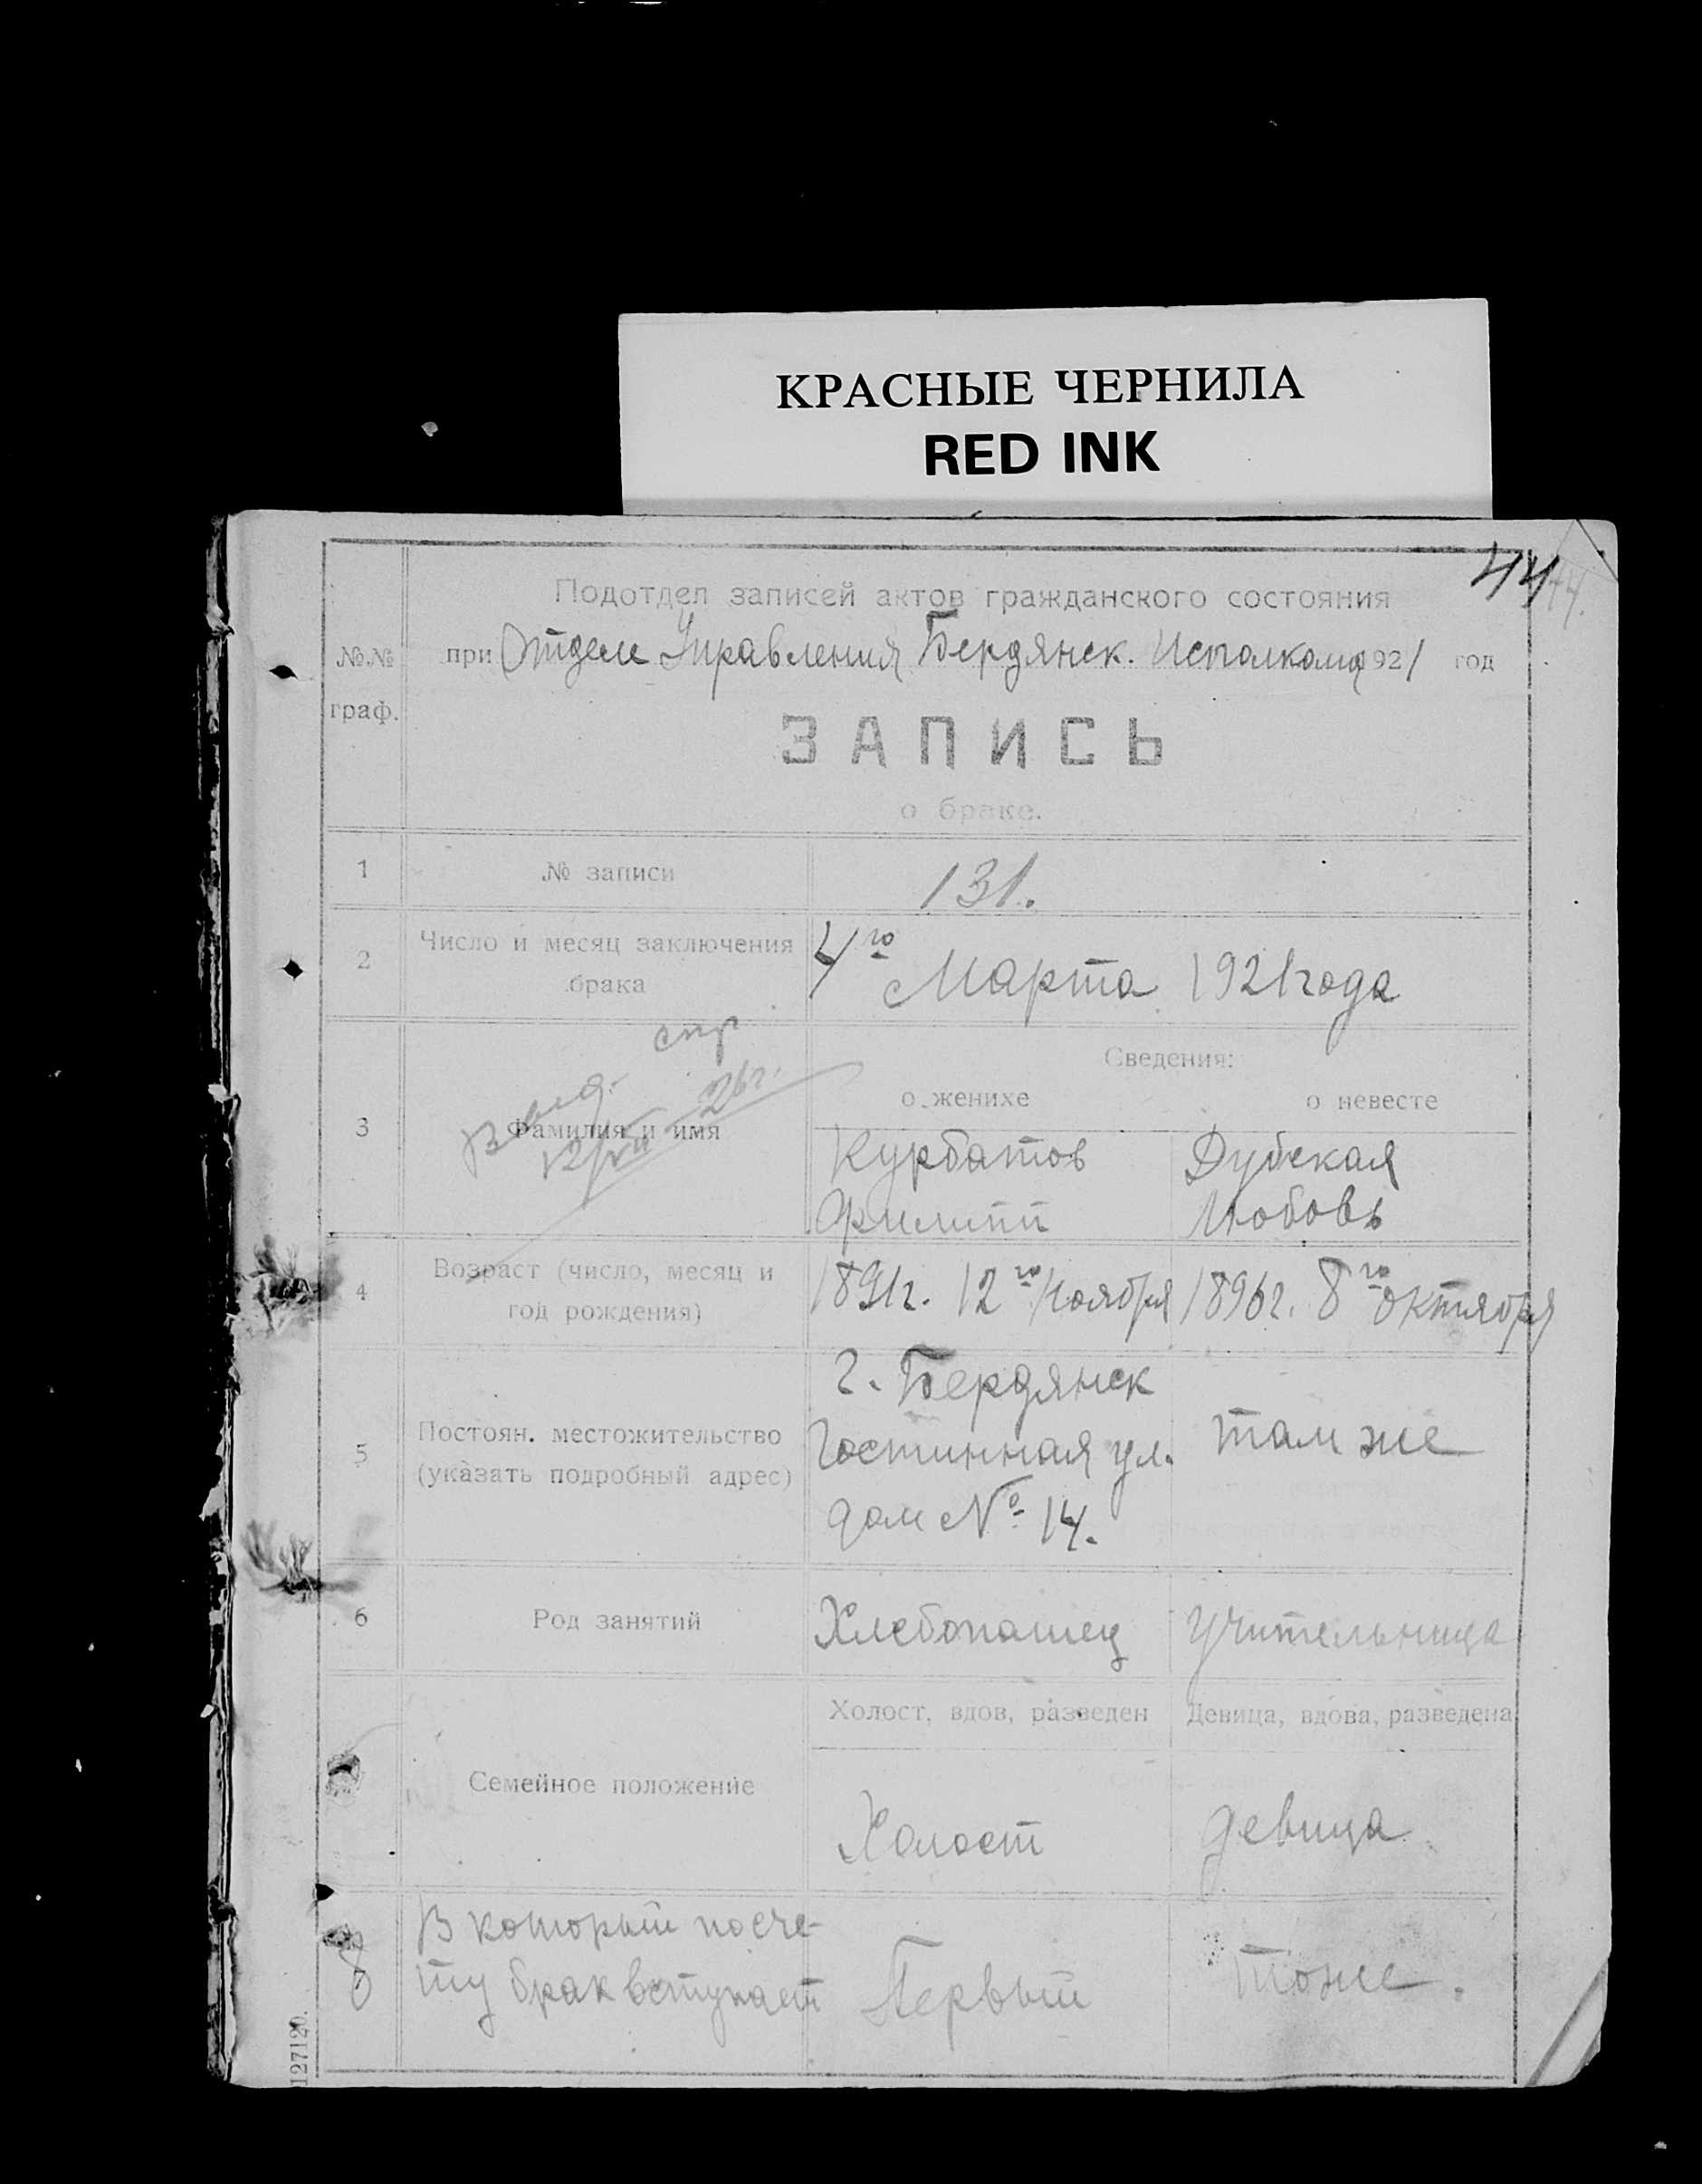 КРАСНЫЕ ЧЕРНИЛА
RED INK
44
Подотдел записей актов гражданского состояния
№№ граф.
при Отделе Управления Бердянск. Исполкома 1921 год
ЗАПИСЬ
о браке.
1 № записи 131.
2 Число и месяц заключения брака
4го Марта 1921 года
Сведения:
о женихе о невесте
3 Фамилия и имя
Выд. спр
12/VII 26г.
Курбатов Дубская
Филипп Любовь
4 Возраст (число, месяц и
год рождения)
1891г. 12го Ноября 1896г. 8го октября
5 Постоян. местожительство
(указать подробный адрес)
г. Бердянск
Гостинная ул. там же
дом № 14.
6 Род занятий Хлебопашец Учительница
Холост, вдов, разведен Девица, вдова, разведена
Семейное положение
Холост девица
8 В который по сче-
ту брак вступает Первый тоже.
127120.